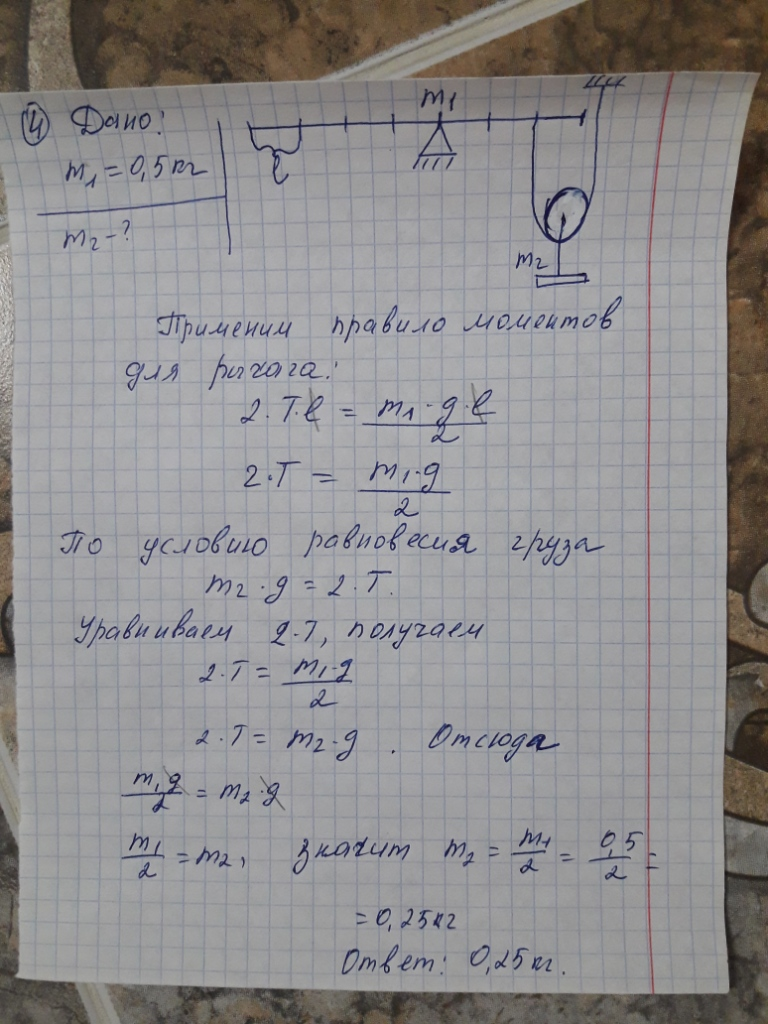 ④ Дано:
m₁ = 0,5 кг
m₂ - ?
m₁
l
m₂
Применим правило моментов
для рычага:
2·T·l = m₁·g·l/2
2·T = m₁·g/2
По условию равновесия груза
m₂·g = 2·T.
Уравниваем 2·T, получаем
2·T = m₁·g/2
2·T = m₂·g. Отсюда
m₁g/2 = m₂·g
m₁/2 = m₂, значит m₂ = m₁/2 = 0,5/2 =
= 0,25кг
Ответ: 0,25кг.